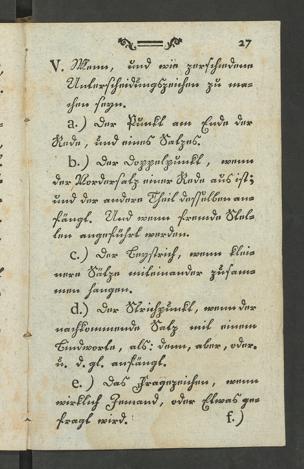 27
V. Wenn, und wie verschiedene
Unterscheidungszeichen zu ma-
chen seyn.
a.) Der Punkt am Ende der
Rede, und eines Satzes.
b.) Der Doppelpunkt, wenn
der Vordersatz einer Rede aus ist,
und der andere Theil desselben an-
fängt. Und wenn fremde Stel-
len angeführt werden.
c.) Der Beystrich, wenn klei-
nere Sätze miteinander zusam-
men hangen.
d.) Der Strichpunkt, wenn der
nachkommende Satz mit einem
Bindworte, als: denn, aber, oder.
u. d. gl. anfängt.
e.) Das Fragezeichen, wenn
wirklich Jemand, oder Etwas ge-
fragt wird.
f.)